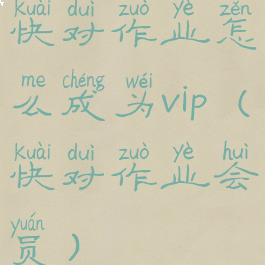 kuài duì zuò yè zěn
快对作业怎
me chéng wéi
么成为vip（
kuài duì zuò yè huì
快对作业会
yuán
员）